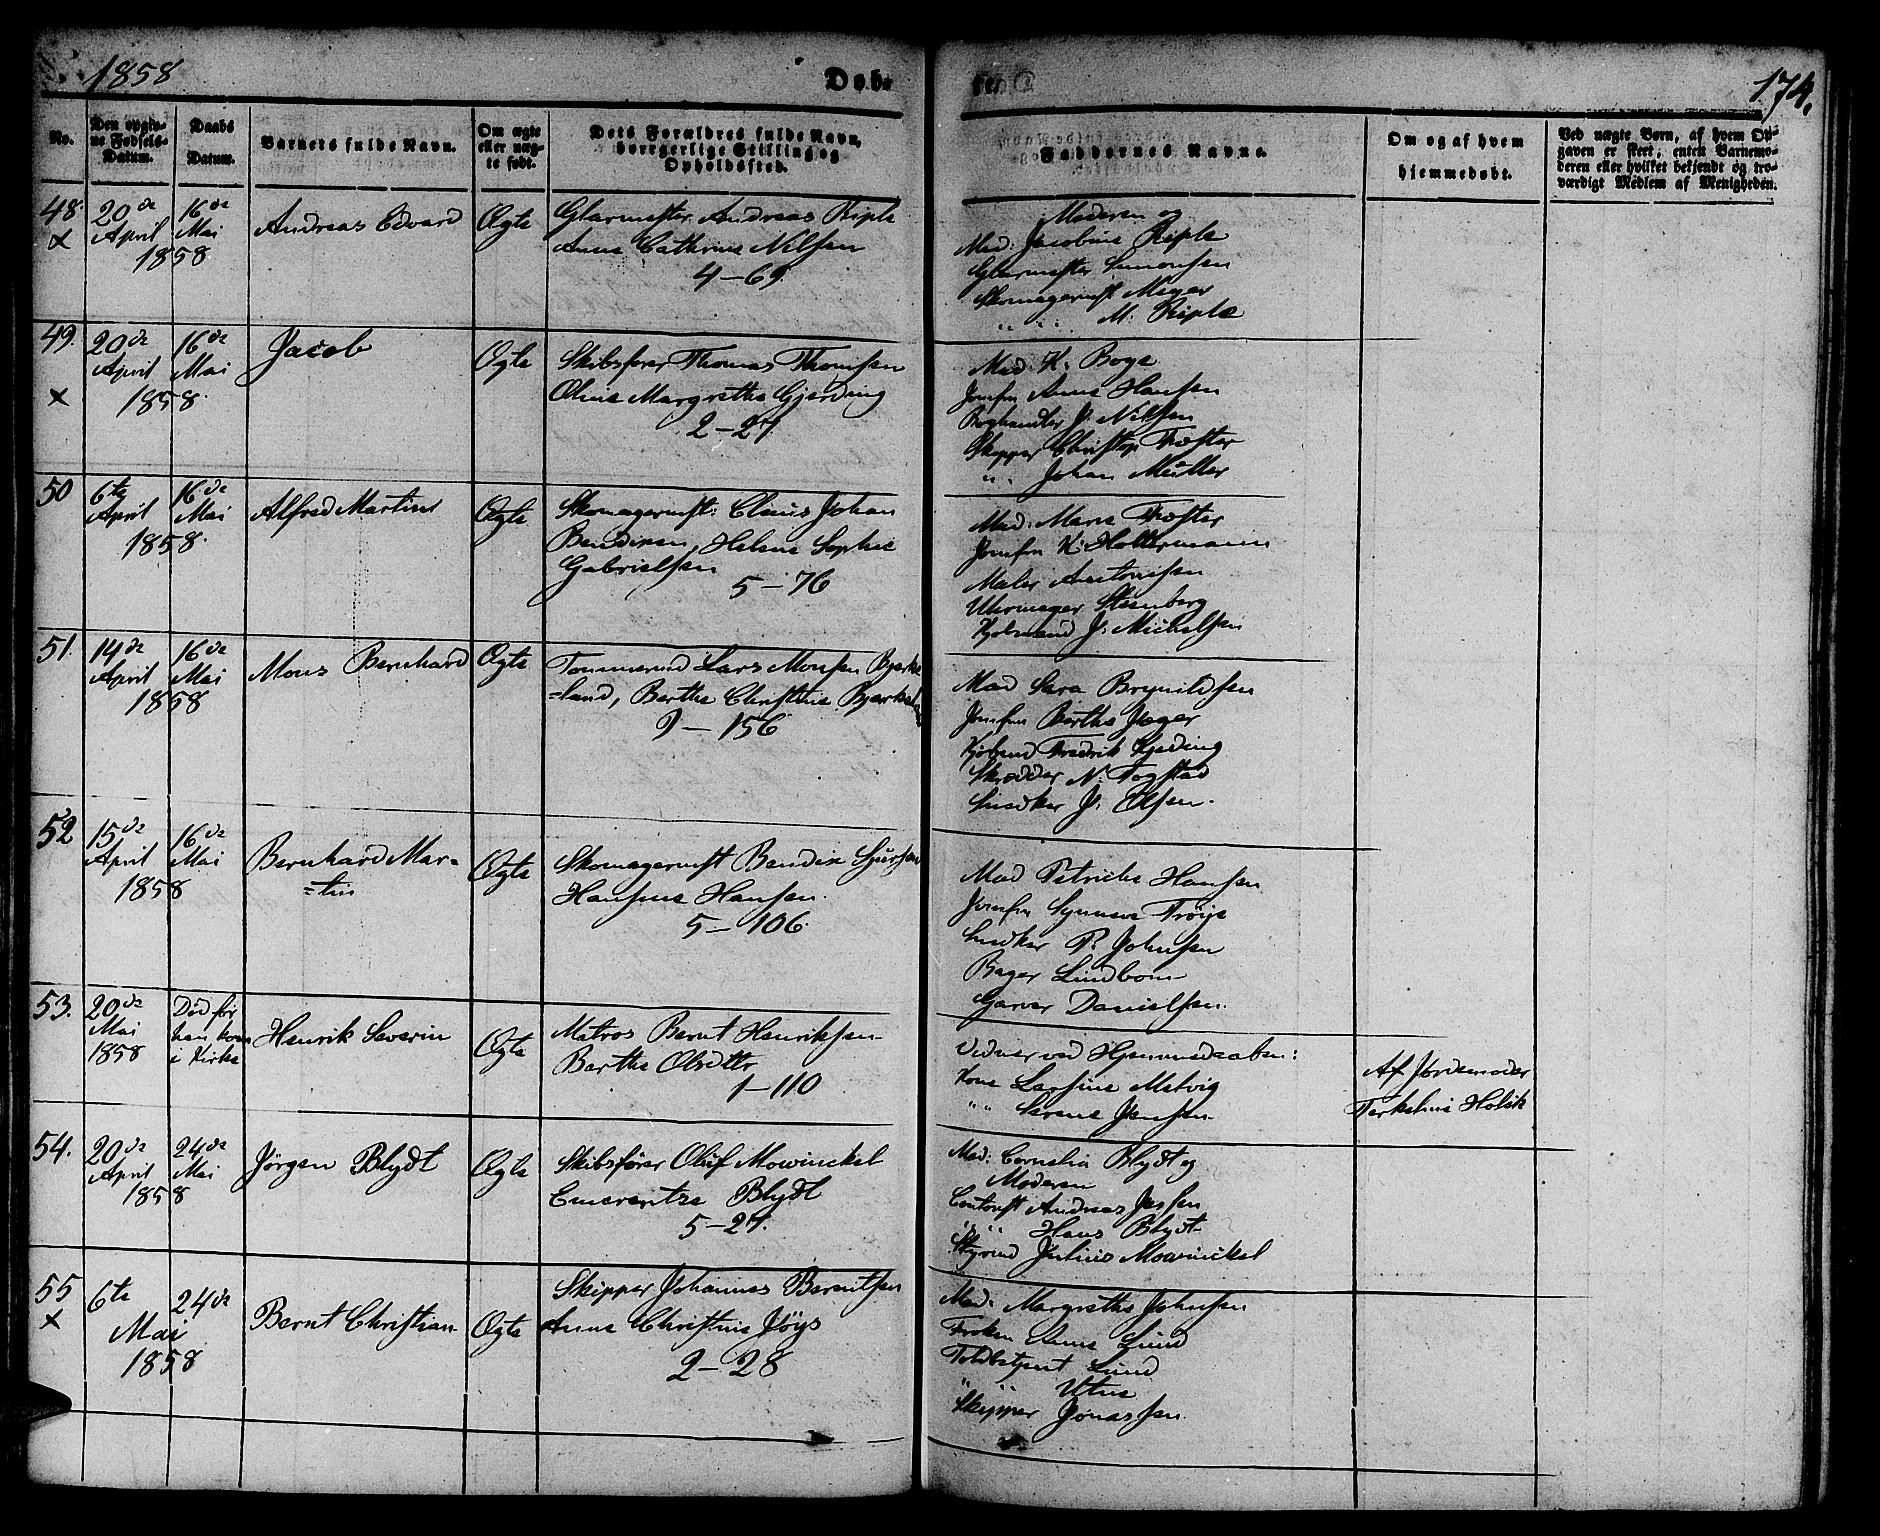 1858
Døb-
te.
174.
No.
Den opgiv-
ne Fødsels-
Datum.
Daabs
Datum.
Barnets fulde Navn.
Om ægte
eller uæg-
te født.
Dets Forældres fulde Navn,
borgerlige Stilling og
Opholdssted.
Faddernes Navne.
Om og af hvem
hjemmedøbt.
Ved uægte Børn, af hvem Op-
gaven er skeet; enten Barnemo-
deren eller hvilket bekjendt og tro-
værdigt Medlem af Menigheden.
48.
x
20de
April
16de
Mai
1858
Andreas Edvard
Ægte
Glarmester Andreas Riple
Anne Cathrine Nilsen
4-69.
Moderen og
Mad: Jacobine Riple
Glarmester Simonsen
Skomagermst Meyer
" " M: Riple
49.
x
20de
April
16de
Mai
1858.
Jacob
Ægte
Skibsfører Thomas Thomsen
Oline Margrethe Gjerding
2-27.
Mad K. Boge
Jomfru Anne Hansen
Boghandler J. Nilsen
Skipper Christop Troster
" Johan Müller
50
6te
April
16de
Mai
1858.
Alfred Martin
Ægte
Skomagermst: Claus Johan
Bendixen, Helene Sophie
Gabrielsen
5-76
Mad: Marie Troster
Jomfru K: Holtermann
Maler Antonisen
Uhrmager Steenberg
Kjøbmand J: Michelsen
51.
14de
April
16de
Mai
1858
Mons Bernhard
Ægte
Tømmermd Lars Monsen Bjerke
=land, Berthe Christine Bjerkeland
9-156
Mad Sara Brynildsen
Jomfru Berthe Jæger
Kjøbmd Fredrik Gjeding
Skrædder N. Fogstad
Snedker J. Olsen.
52
15de
April
16de
Mai
1858
Bernhard Mar=
=tin
Ægte
Skomagermst Bendix Sjursen
Hansine Hansen.
5-106.
Mad Petriche Hansen
Jomfru Synneve Trøye
Snedker P. Johnsen
Bager Lindbom
Garver Danielsen.
53.
20de
Mai
1858
Død før
han kom
i Kirke
Henrik Severin
Ægte
Matros Bernt Henriksen
Berthe Olsdttr
1-110
Vidner ved Hjemmedaaben:
Kone Larsine Matvig
" " Serene Jensen
Af Jordemoder
Terkeline Holck
54.
20de
April
24de
Mai
1858
Jørgen Blydt
Ægte
Skibsfører Oluf Mowinckel
Emerentze Blydt
5-27.
Mad: Cornelia Blydt og
Moderen
Contorist Andreas Jessen
" " Hans Blydt
Styrmd Julius Mowinckel
55
x
6te
Mai
24de
1858
Bernt Christian
Ægte
Skipper Johannes Berentsen
Anne Christine Jøys
2-28
Mad: Margrethe Johnsen
Frøken Anne Lund
Toldbetjent Lund
" " Utne
Skipper Jonassen.